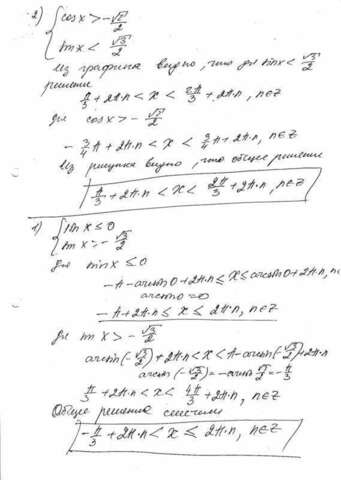 2) { cos x > -√2/2
sin x < √3/2
Из графика видно, что для sin x < √3/2
решение
π/3 + 2π·n < x < 2π/3 + 2π·n, n∈Z
Для cos x > -√2/2
-3/4 π + 2π·n < x < 3/4 π + 2π·n, n∈Z
Из рисунка видно, что общее решение
π/3 + 2π·n < x < 2π/3 + 2π·n, n∈Z
1) { sin x ≤ 0
sin x > -√3/2
Для sin x ≤ 0
-π - arcsin 0 + 2π·n ≤ x ≤ arcsin 0 + 2π·n, n
arcsin 0 = 0
-π + 2π·n ≤ x ≤ 2π·n, n∈Z
Для sin x > -√3/2
arcsin(-√3/2) + 2π·n < x < π - arcsin(-√3/2) + 2π·n
arcsin(-√3/2) = -arcsin √3/2 = -π/3
π/3 + 2π·n < x < 4π/3 + 2π·n, n∈Z
Общее решение системы
-π/3 + 2π·n < x ≤ 2π·n, n∈Z